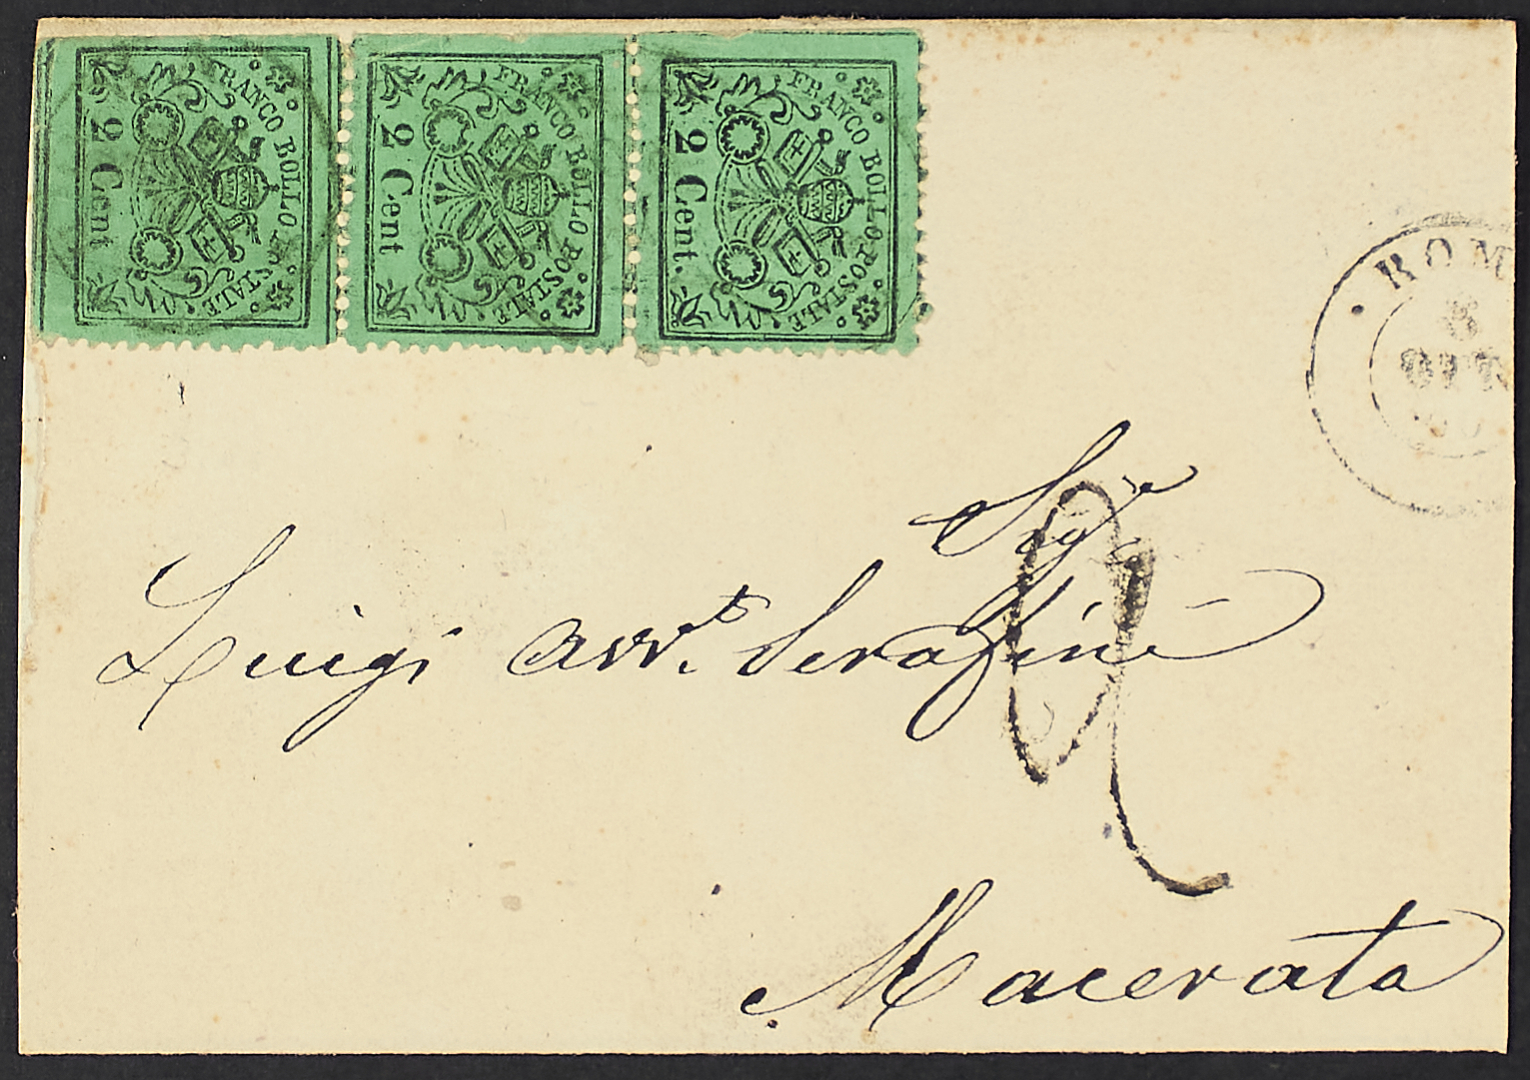 FRANCO BOLLO POSTALE
2 Cent
FRANCO BOLLO POSTALE
2 Cent
FRANCO BOLLO POSTALE
2 Cent.
ROM
8
OTT
Sigre
Luigi Avvt. Serafini
2
Macerata